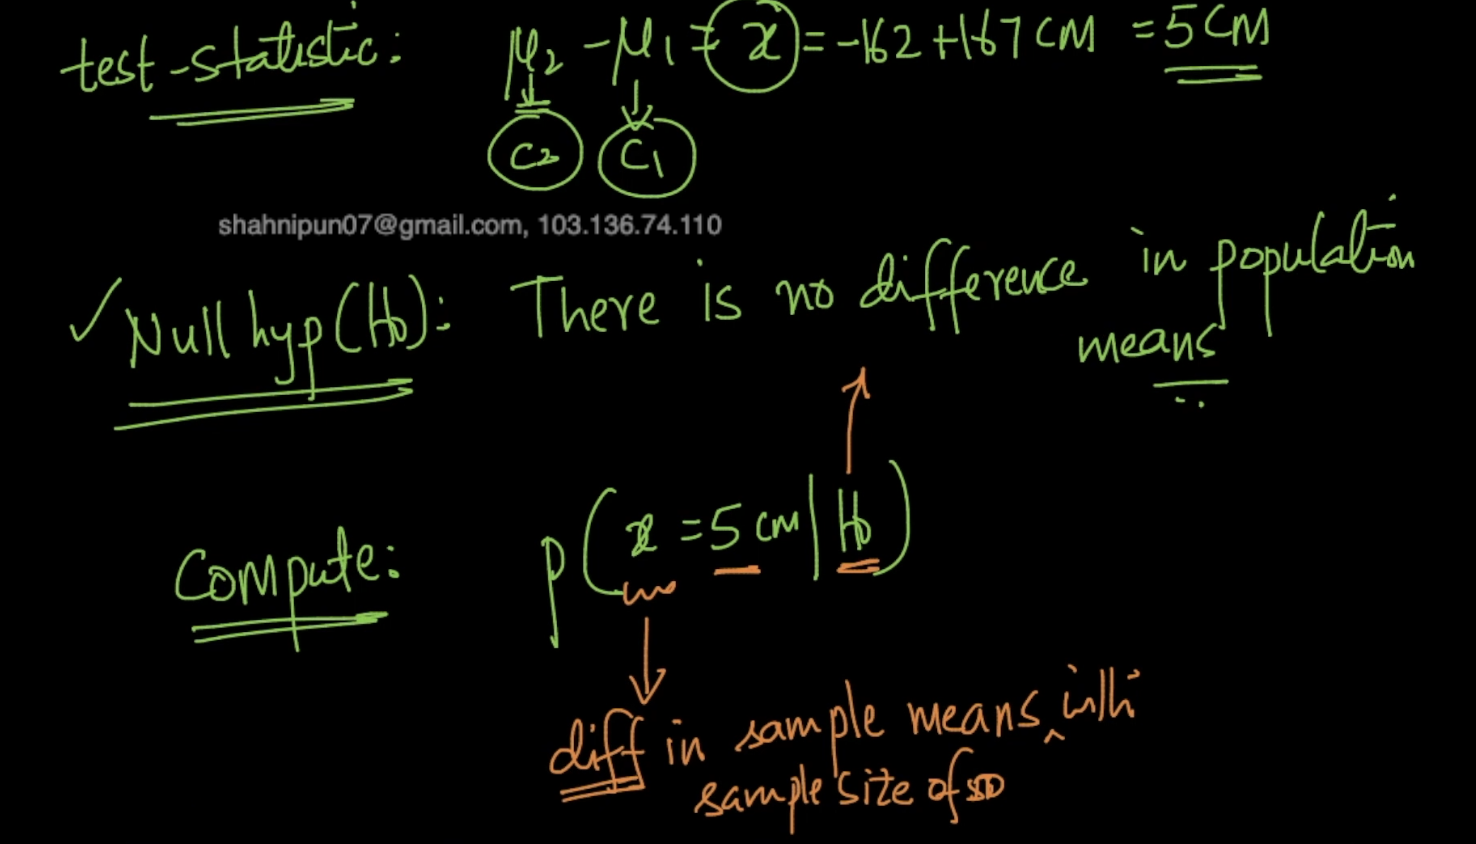 test-statistic: μ2 - μ1 = x = -162 + 167 CM = 5 CM
C2 C1
shahnipun07@gmail.com, 103.136.74.110
✓ Null hyp (H0): There is no difference in population
means
Compute: P(x = 5 cm | H0)
diff in sample means ^ with
sample size of 50